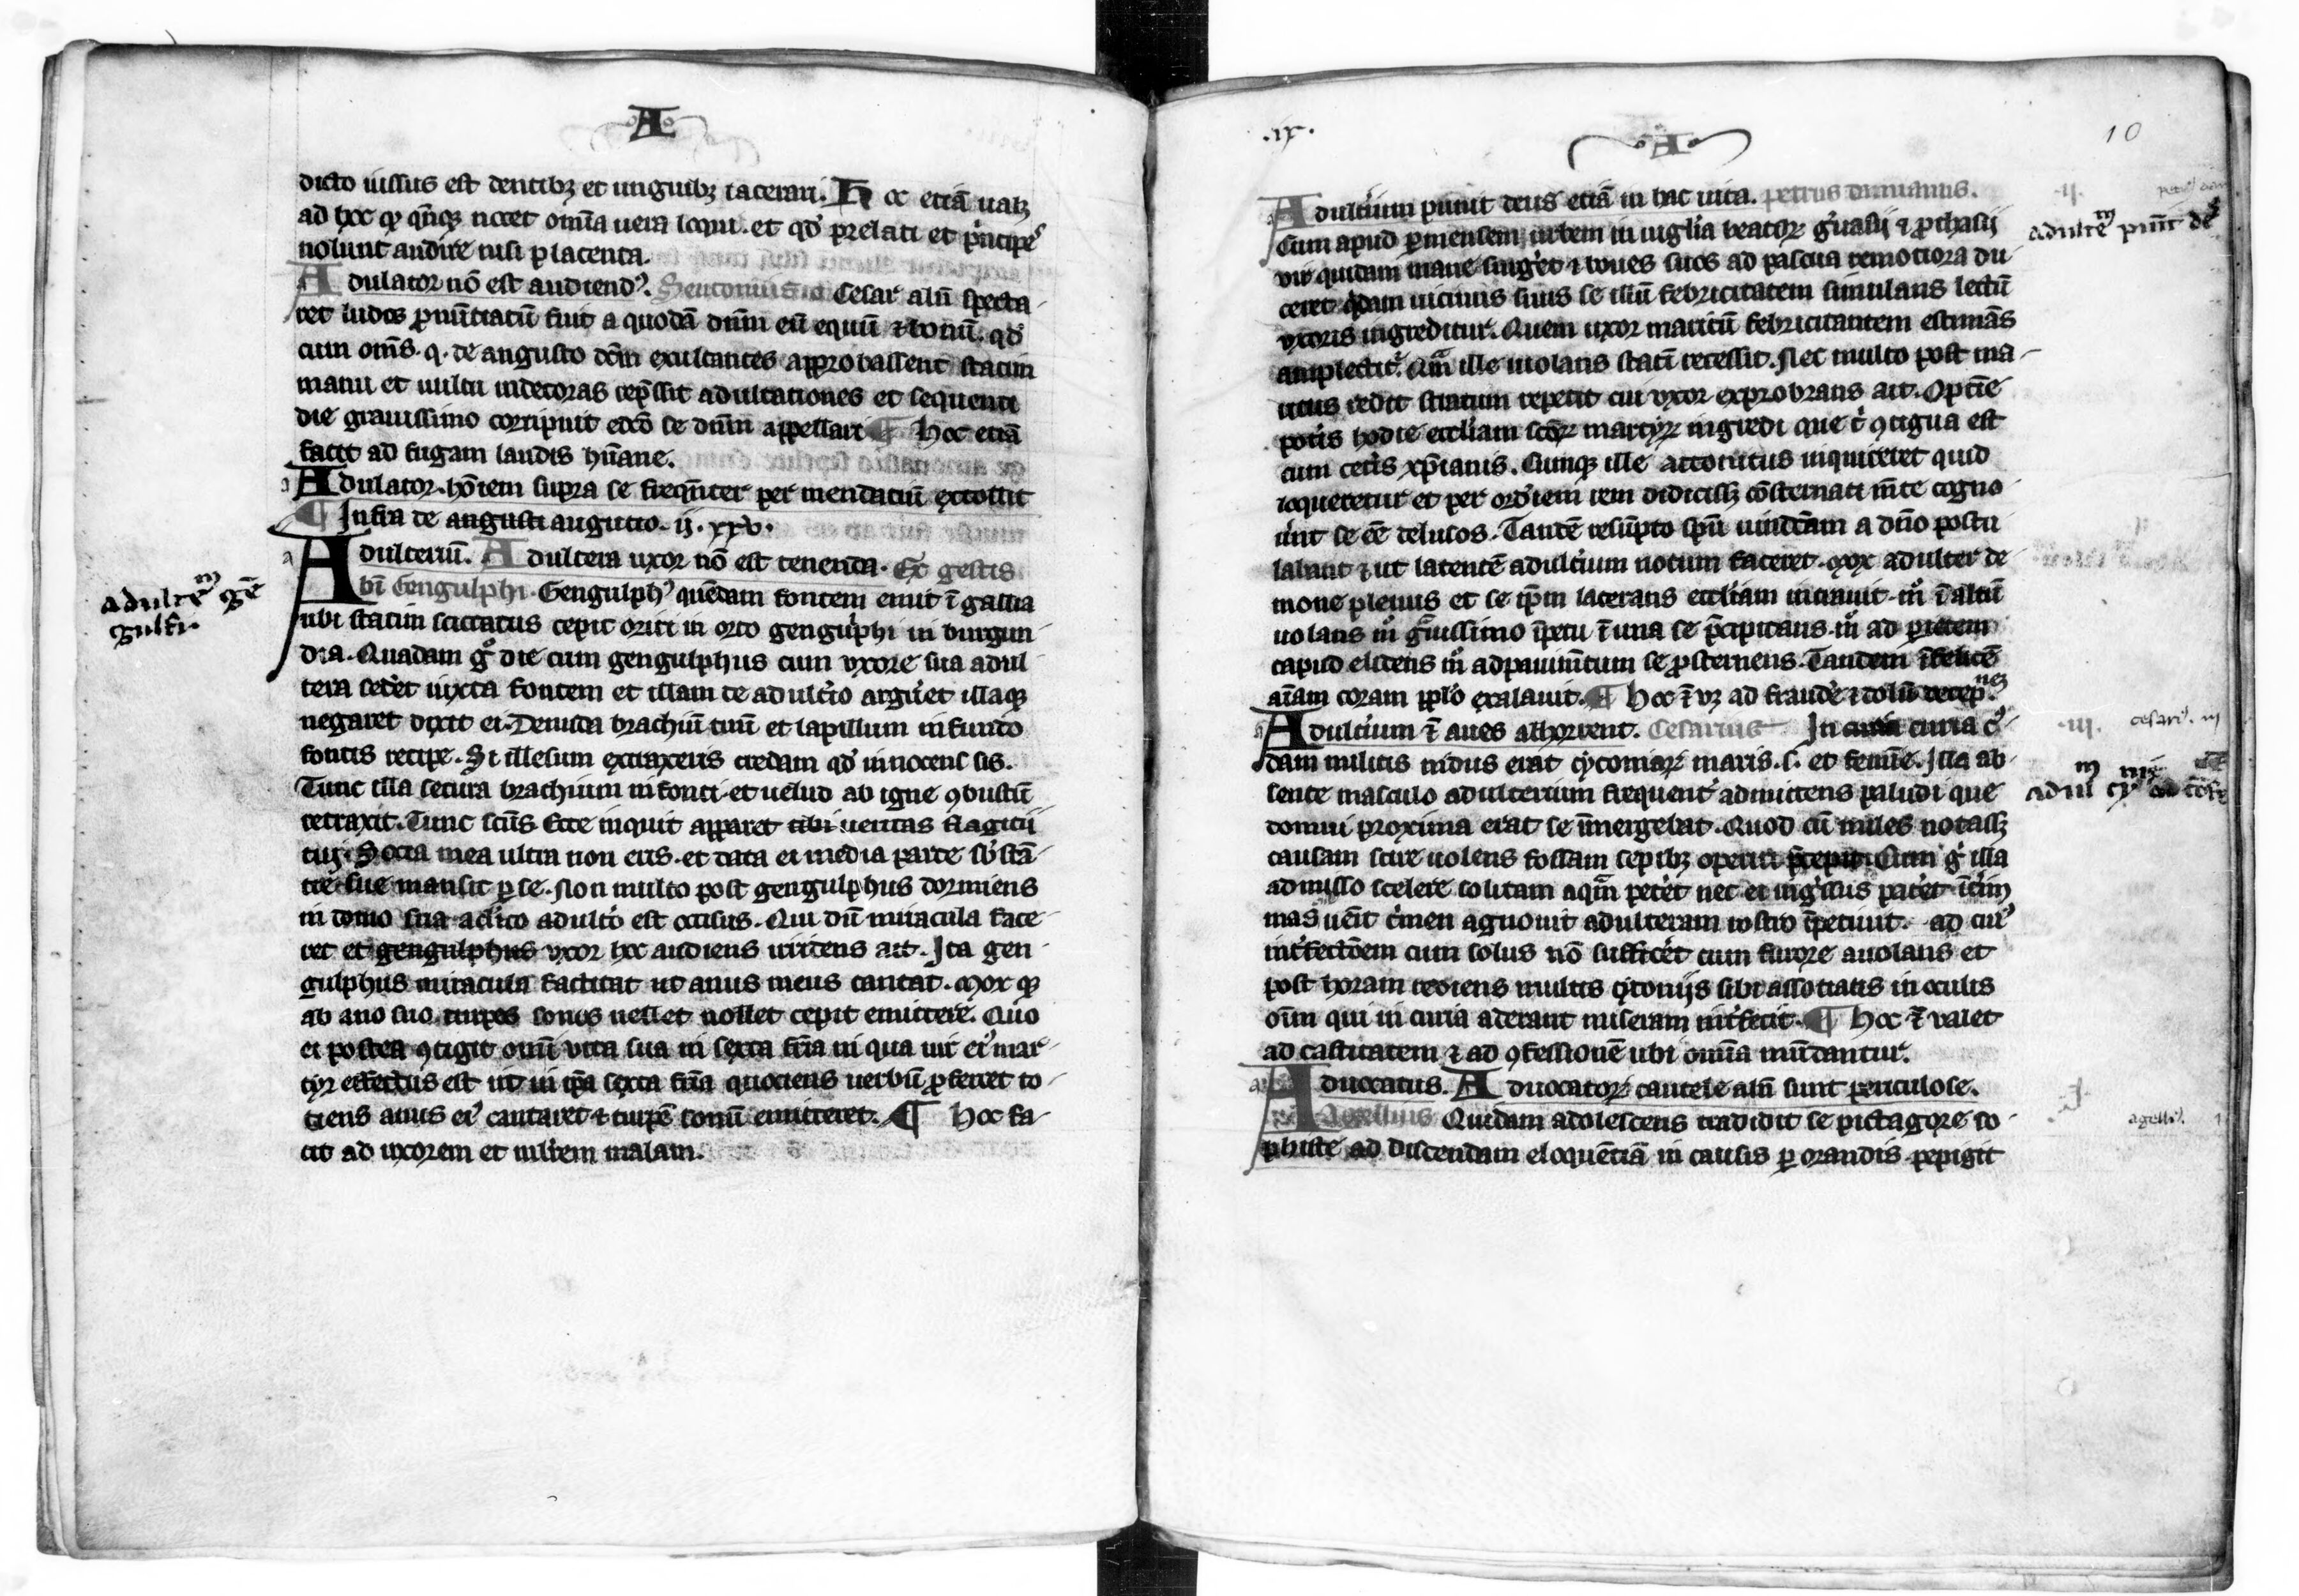 A
dicto iussus est dentibꝫ et unguibꝫ lacerari. Hoc etiā ualꝫ
ad hoc qꝫ qn̄qꝫ nocet om̄ia uera loqui. et qd' prelati et p'ncipes
nolunt audire nisi placentia.
Adulator nō est audiendꝰ. Seutonius Cesar alii specta-
ret ludos ꝓnūtiatū fuit a quodā dn̄m eū equū ⁊ bonū. qd'
cum om̄s. q. de augusto dc̄m exultantes approbassent statim
manu et uultu indecoras rep̄ssit adultationes et sequenti
die grauissimo corripuit edc̄o se dn̄m appellari ¶ Hoc etiā
facit ad fugam laudis hūane.
Adulator hōiem supra se freqn̄ter per mendaciū extollit
¶ Infra de augusti augurio. ij. xxv.
Adulteriū. Adultera uxor nō est tenenda. Ex gestis
bt̄i Gengulphi. Gengulphꝰ quēdam fontem emit ī gallia
ubi statim siccatus cepit oriri in orto gengulphi in burgun-
dia. Quadam gͦ die cum gengulphus cum uxore sua adul-
tera sederet iuxta fontem et illam de adult'io argu'et illaqꝫ
negaret dixit ei. Denuda brachiū tuū et lapillum in fundo
fontis recipe. Si illesum extraxeris credam qd' innocens sis.
Tunc illa secura brachium in fonti et uelud ab igne ꝯbustū
retraxit. Tunc scūs Ecce inquit apparet tibi ueritas flagitii
tui. Socia mea ultra non eris. et data ei media parte sb'stā-
tie sue mansit ꝑ se. Non multo post gengulphus dormiens
in domo sua a cl'ico adult'o est occisus. Qui dū miracula face-
ret et gengulphus uxor hoc audiens irridens ait. Ita gen-
gulphus miracula factitat ut anus meus cantat. Mox qꝫ
ab ano suo turpes sonos uellet nollet cepit emittere. Quo
ei postea ꝯtigit omi uita sua in sexta fr̄ia in qua uir eiꝰ mar-
tyr effectus est ut in ip̄a sexta fr̄ia quociens uerbū ꝓferret to-
ciens anus eiꝰ cantaret ⁊ turpē sonū emitteret. ¶ Hoc fa-
cit ad uxorem et mul'rem malam.
adulteᵐ gē
gulfi.
.ix.
A
10
Adult'ium punit deus etiā in hac uita. petrus damianus.
Cum apud ꝑmensem urbem in uigl'ia beatoꝝ g'uasij ⁊ ꝓthasij
vir quidam mane surg'et ⁊ boues suos ad pascua remociora du
ceret qͥdam uicinus suus se illū febricitatem simulans lectū
uxoris ingreditur. Quem uxor maritū febricitantem estimās
amplectit'. Qm̄ ille uiolans statī recessit. Nec multo post ma-
ritus redit stratum repetit cui uxor exprobrans ait. Optīe
pot'is hodie eccl'iam scōꝝ martyrꝝ ingredi que t' ꝯtigua est
cum cet'is xp̄ianis. Cunqꝫ ille attonitus inquireret quid
loqueretur et per ord'iem rem didicissꝫ cōsternati mn̄te cogno-
u'nt se ēē delusos. Tandē resūpto sp̄u uindc̄am a dn̄o postu
labant ⁊ ut latentē adult'ium notum faceret. mox adulter de-
mone plenus et se ip̄m lacerans eccl'iam intrauit. mͦ ī altū
uolans mͦ gͣuissimo īpetu ī una se p̄cipitans. mͦ ad parietem
capud elidens mͦ ad pauimn̄tum se ꝓsternens. Tandem īfelicē
aīam coram pp̄lo exalauit. ¶ Hoc ⁊ uꝫ ad fraudē ⁊ dolū decep
Adult'ium ⁊ aues abhorrent. Cesarius In curia cͥ-
dam militis nidus erat cyconiaꝝ maris. s. et femīe. Illa ab-
sente masculo adulterium frequent' admittens paludi que
domui proxima erat se īmergebat. Quod cū miles notassꝫ
causam scire uolens fossam sepibꝫ operiri p̄cepit. Cum gͦ illa
admisso scelere solitam aqͣm pet'et nec ei ingͥssus pat'et īt'im
mas uēit c'men agnouit adulteram rostro īpetiuit. ad cuiꝰ
int'fectōem cum solus nō suffic'et cum furore auolans et
post horam rediens multis cyconijs sibi associatis in oculis
oīm qui in curia aderant miseram int'fecit. ¶ Hoc ⁊ ualet
ad castitatem ⁊ ad ꝯfessionē ubi omīa mūdantur.
Aduocatus. Aduocatoꝝ cautele alii sunt periculose.
Agellius Quidam adolescens tradidit se pictagore so-
phiste ad discendam eloquētiā in causis ꝑorandis pepigit
.ij.
adulteᵐ punit dē
.iij. cesariꝰ. iij
agelliꝰ. 1